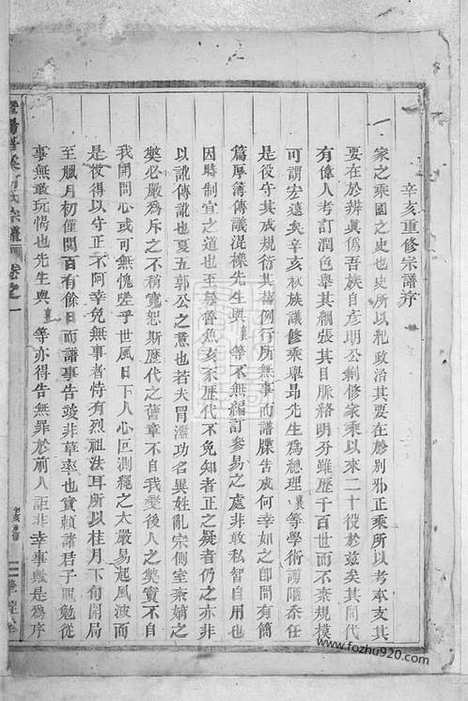 辛亥重修宗譜序
一家之乘國之史也史所以紀政治其要在於別邪正乘所以考本支其
要在於辨眞僞吾族自彥明公剏修家乘以來二十役於茲矣其間代
有偉人考訂潤色舉其綱張其目脉絡明分雖歷千百世而不衰規模
可謂宏遠矣辛亥秋族議修乘舉昂先生爲總理襄等學術謭陋忝任
是役守其成規衍其舊例行所無事而譜牒告成何幸如之卽間有簡
篇厚簿傳議湜樸先生與襄等不無編訂參易之處非敢私智自用也
因時制宜之道也至於魯魚亥豕歷代不免知者正之疑者仍之亦非
以訛傳訛也夏五郭公之意也若夫冒濫功名異姓亂宗側室乘嫡之
獘必嚴爲斥之不稍寬恕斯歷代之舊章不自我變後人之獘竇不自
我開問心或可無愧嗟乎世風日下人心叵測繩之太嚴易起風波而
是役得以守正不阿幸免無事者恃有烈祖法耳所以桂月下旬開局
至臘月初僅閱百有餘日而譜事告竣非草率也實賴諸君子黽勉從
事無敢玩愒也先生與襄等亦得告無罪於前人詎非幸事歟是爲序
宗譜
卷之一
www.fozhu920.com